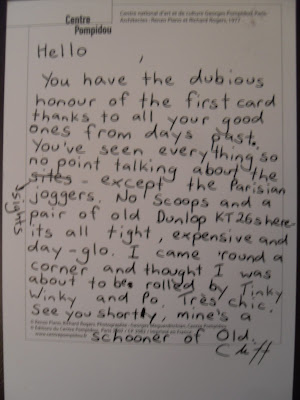 Centre
Pompidou
Centre national d'art et de culture Georges Pompidou, Paris
Architectes : Renzo Piano et Richard Rogers, 1977
Hello,
You have the dubious
honour of the first card
thanks to all your good
ones from days past.
You've seen everything so
no point talking about the
sites - except the Parisian
sights
joggers. No Scoops and a
pair of old Dunlop KT26s here
its all tight, expensive and
day-glo. I came 'round a
corner and thought I was
about to be rolled by Tinky
Winky and Po. Très chic.
See you shortly, mine's a
schooner of Old.
Cliff
© Renzo Piano, Richard Rogers, Photographie : Georges Meguerditchian, Centre Pompidou
© Éditions du Centre Pompidou, Paris
Imprimé en France
www.centrepompidou.fr